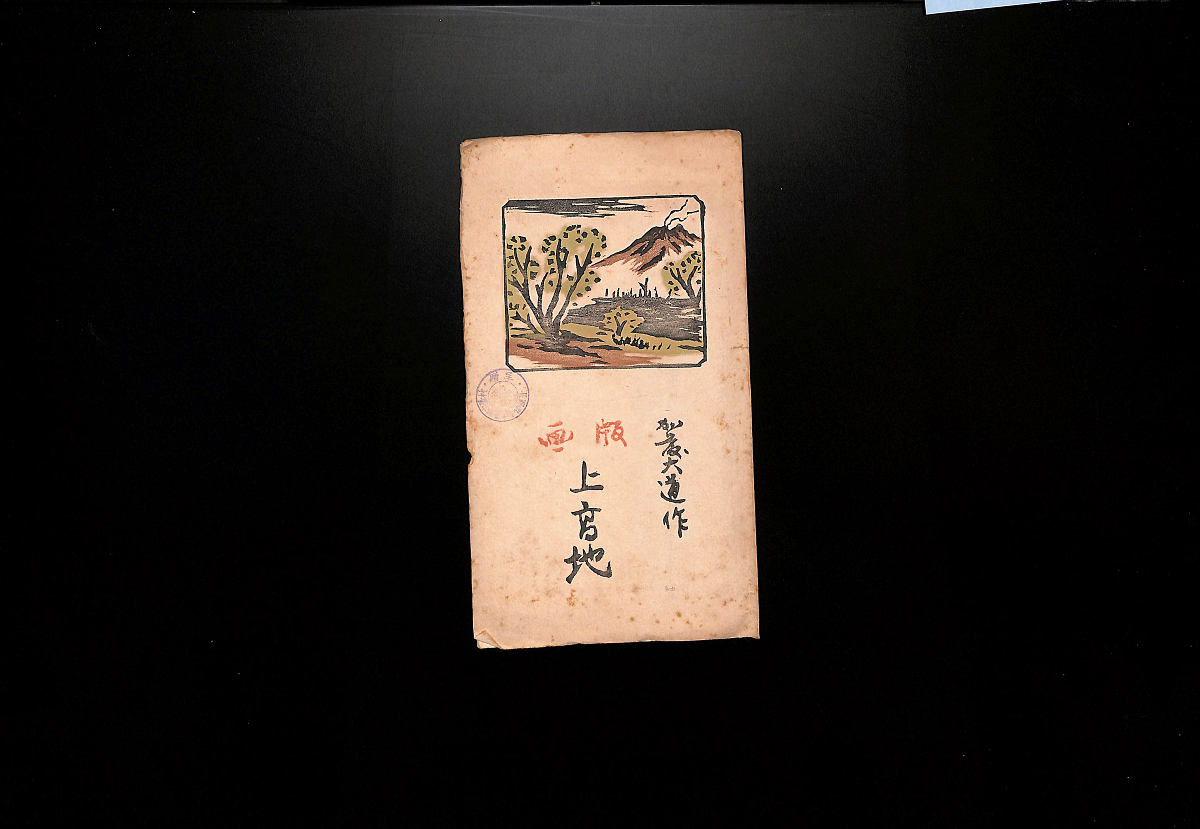 加藤大道作
版画
上高地